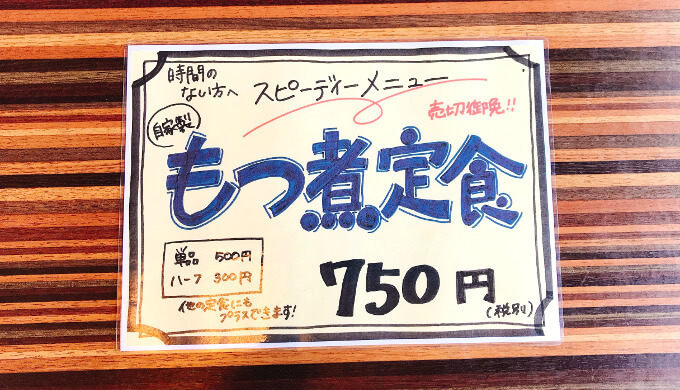 時間の
ない方へ
スピーディーメニュー
売切御免!!
自家製
もつ煮定食
単品 500円
ハーフ 300円
他の定食にも
プラスできます!
750円
(税別)